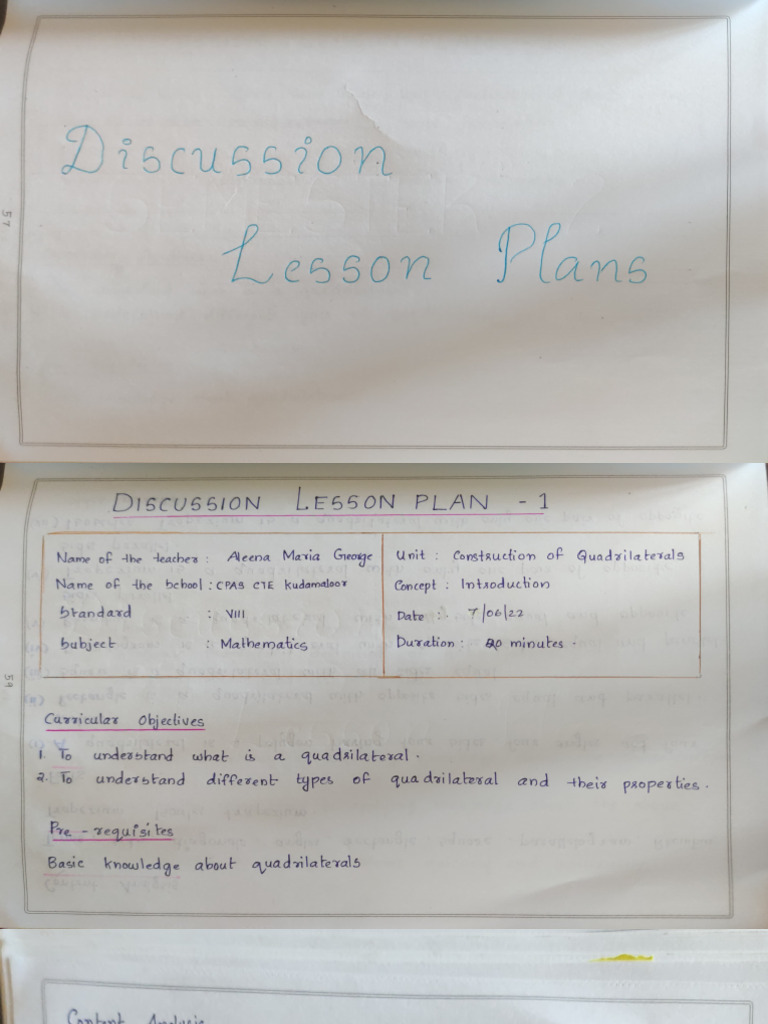 Discussion
Lesson Plans
57
DISCUSSION LESSON PLAN - 1
Name of the teacher : Aleena Maria George
Name of the School : CPAS CTE Kudamaloor
Standard : VIII
Subject : Mathematics
Unit : Construction of Quadrilaterals
Concept : Introduction
Date : 7/06/22
Duration : minutes .
59
Curricular Objectives
1. To understand what is a quadrilateral .
2. To understand different types of quadrilateral and their properties .
Pre - requisites
Basic knowledge about quadrilaterals
Content Analysis